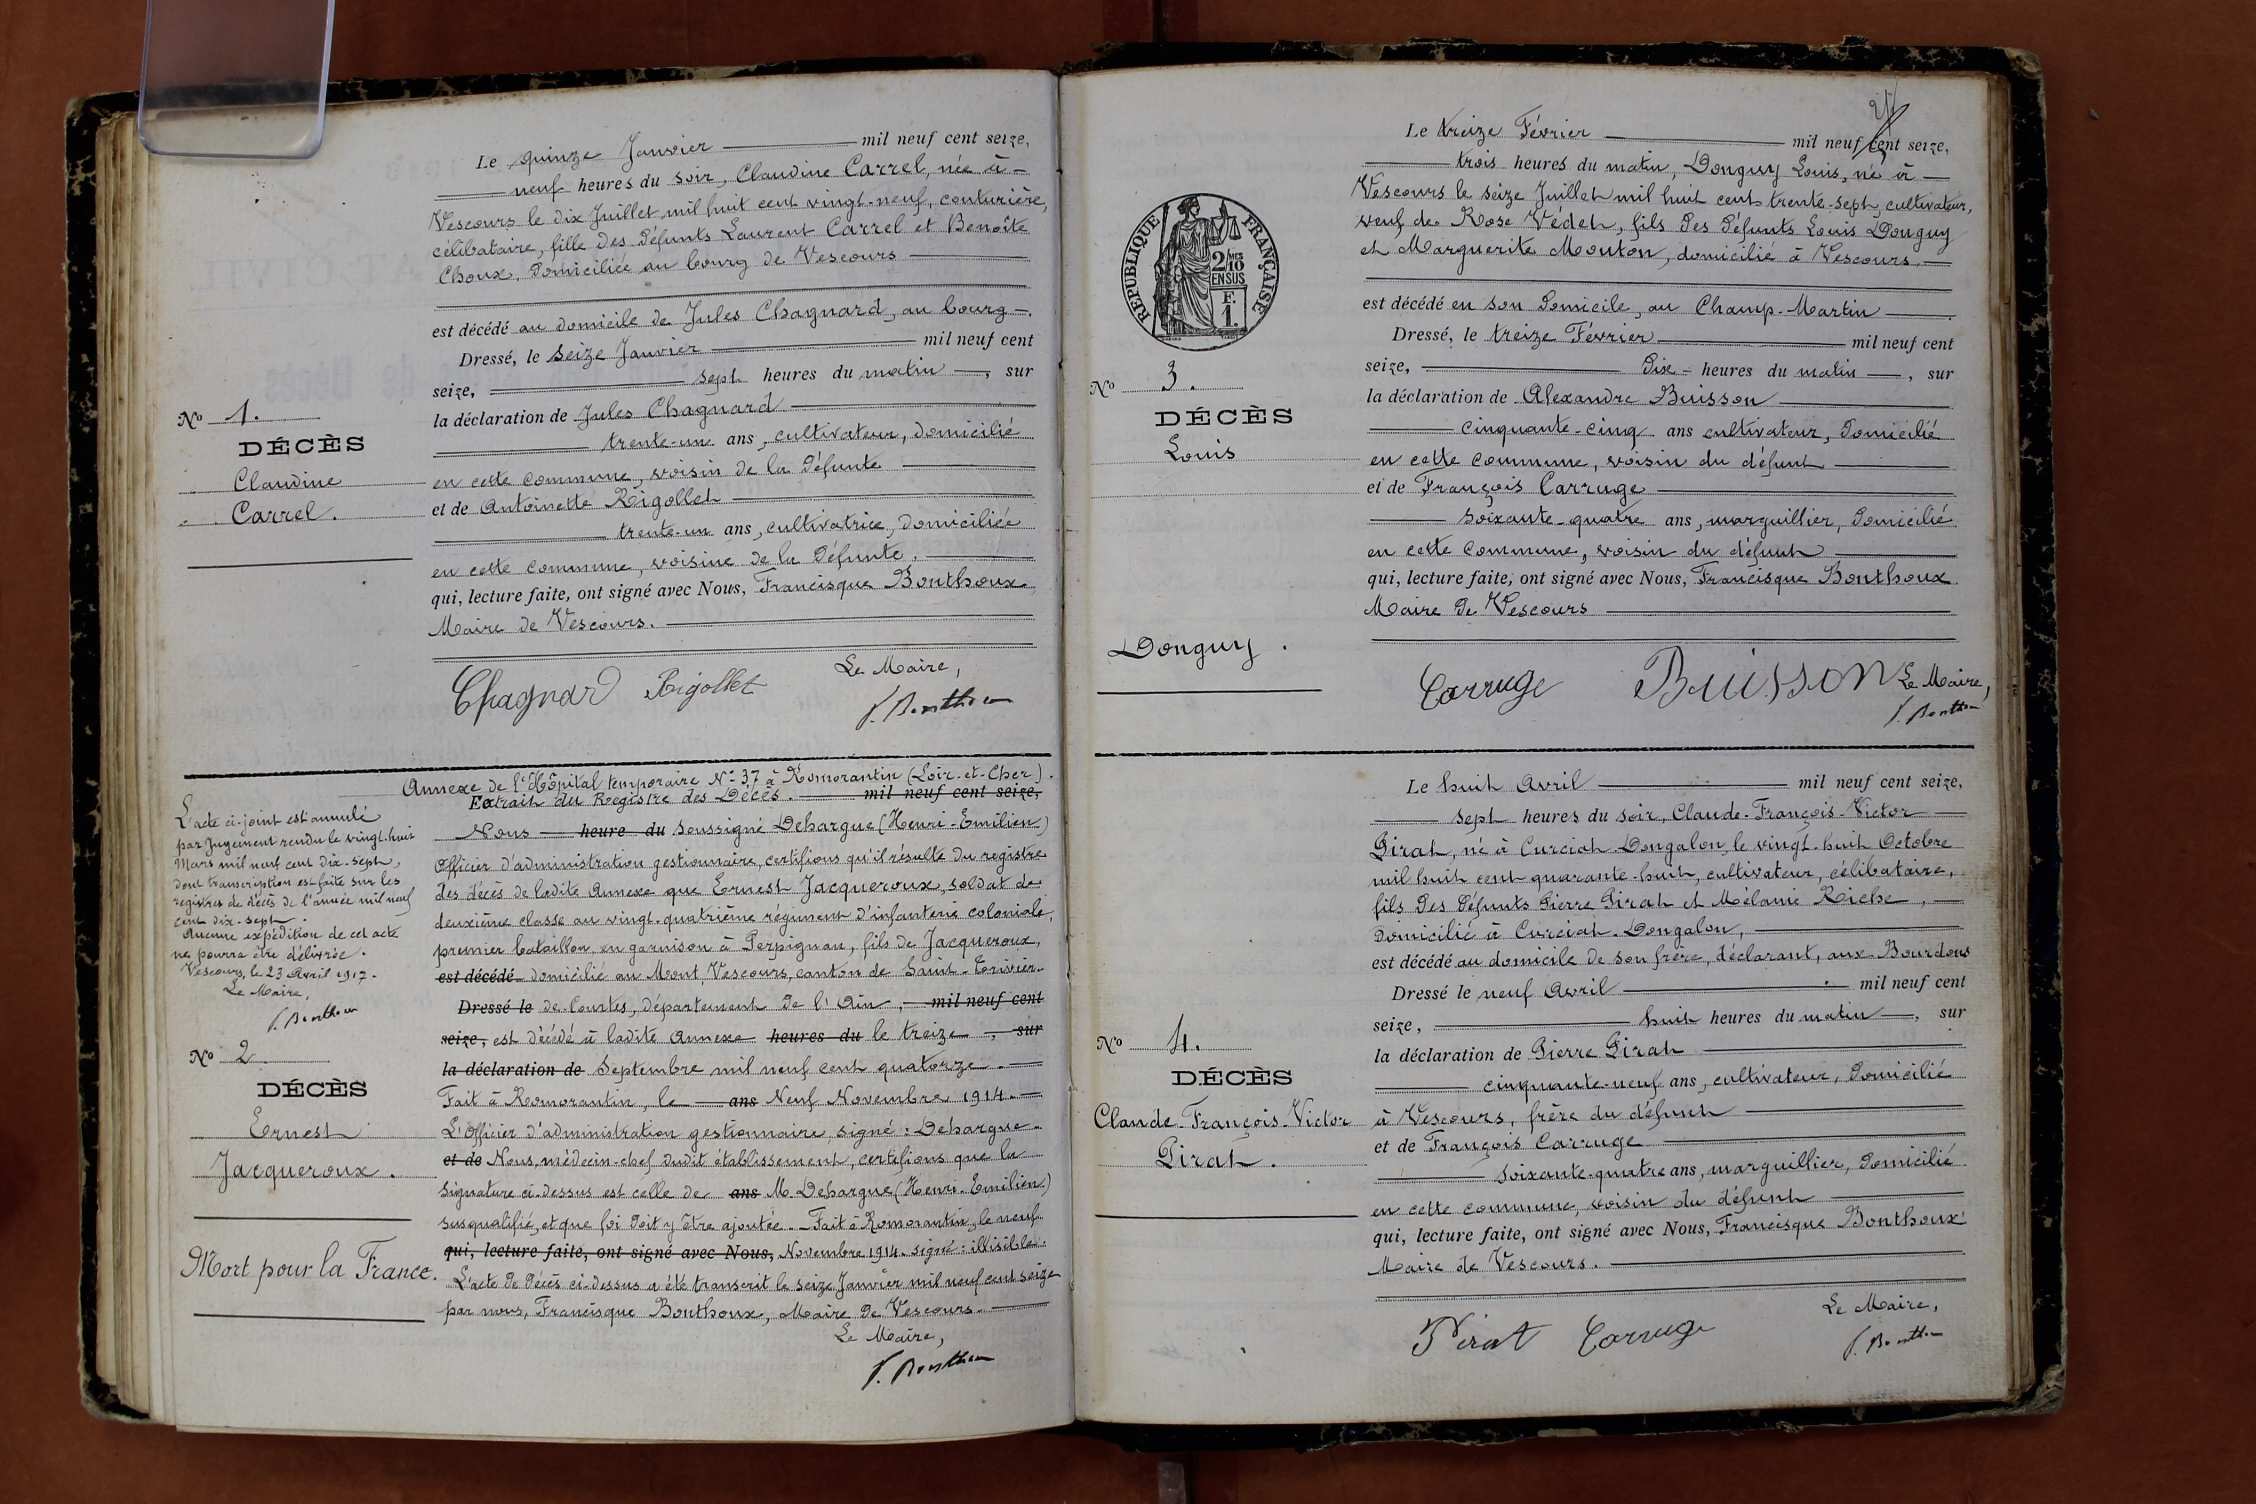 Le quinze Janvier mil neuf cent seize,
neuf heures du soir, Claudine Carrel, née à
Vescours le dix Juillet mil huit cent vingt-neuf, couturière,
célibataire, fille des défunts Laurent Carrel et Benoîte
Choux, domiciliée au bourg de Vescours
est décédé au domicile de Jules Chagnard, au bourg.
Dressé, le seize Janvier mil neuf cent
seize, sept heures du matin, sur
la déclaration de Jules Chagnard
trente-une ans, cultivateur, domicilié
en cette commune, voisin de la défunte
et de Antoinette Rigollet
trente-un ans, cultivatrice, domiciliée
en cette commune, voisine de la défunte.
qui, lecture faite, ont signé avec Nous, Francisque Bonthoux
Maire de Vescours.
Le Maire,
Chagnard Rigollet
F. Bonthoux
No 1.
DÉCÈS
Claudine
Carrel.
Annexe de l'Hôpital temporaire No 37 à Romorantin (Loir-et-Cher).
Extrait du Registre des Décès. mil neuf cent seize,
Nous heure du soussigné Dehargue (Henri-Emilien)
Officier d'administration gestionnaire, certifions qu'il résulte du registre
des décès de ladite Annexe que Ernest Jacqueroux, soldat de
deuxième classe au vingt-quatrième régiment d'infanterie coloniale,
premier bataillon, en garnison à Perpignan, fils de Jacqueroux,
est décédé domicilié au Mont, Vescours, canton de Saint-Trivier-
Dressé le de Courtes, département de l'Ain, mil neuf cent
seize, est décédé à ladite Annexe heures du le treize, sur
la déclaration de Septembre mil neuf cent quatorze.
Fait à Romorantin, le ans Neuf Novembre 1914.
L'Officier d'administration gestionnaire, signé: Dehargue.
et de Nous, médecin-chef dudit établissement, certifions que la
signature ci-dessus est celle de ans M. Dehargue (Henri-Emilien)
susqualifié, et que foi doit y être ajoutée. Fait à Romorantin, le neuf
qui, lecture faite, ont signé avec Nous, Novembre 1914. signé: illisible.
L'acte de décès ci-dessus a été transcrit le seize Janvier mil neuf cent seize
par nous, Francisque Bonthoux, Maire de Vescours.
Le Maire,
F. Bonthoux
L'acte ci-joint est annulé
par Jugement rendu le vingt-huit
Mars mil neuf cent dix-sept,
dont transcription est faite sur les
registres de décès de l'année mil neuf
cent dix-sept.
Aucune expédition de cet acte
ne pourra être délivrée.
Vescours, le 23 Avril 1917.
Le Maire,
F. Bonthoux
No 2
DÉCÈS
Ernest
Jacqueroux.
Mort pour la France.
Le treize Février mil neuf cent seize,
trois heures du matin, Donguy Louis, né à
Vescours le seize Juillet mil huit cent trente-sept, cultivateur,
veuf de Rose Védet, fils des défunts Louis Donguy
et Marguerite Mouton, domicilié à Vescours.
est décédé en son domicile, au Champ-Martin
Dressé, le treize Février mil neuf cent
seize, dix heures du matin, sur
la déclaration de Alexandre Buisson
cinquante-cinq ans cultivateur, domicilié
en cette commune, voisin du défunt
et de François Carruge
soixante-quatre ans, marguillier, domicilié
en cette commune, voisin du défunt
qui, lecture faite, ont signé avec Nous, Francisque Bonthoux
Maire de Vescours
Carruge Buisson Le Maire,
F. Bonthoux
RÉPUBLIQUE FRANÇAISE
2/10 MES
EN SUS
F.
1.
No 3.
DÉCÈS
Louis
Donguy.
Le huit Avril mil neuf cent seize,
sept heures du soir, Claude-François-Victor
Pirat, né à Curciat-Dongalon, le vingt-huit Octobre
mil huit cent quarante-huit, cultivateur, célibataire,
fils des défunts Pierre Pirat et Mélanie Riche,
domicilié à Curciat-Dongalon,
est décédé au domicile de son frère, déclarant, aux Bourdons
Dressé le neuf Avril mil neuf cent
seize, huit heures du matin, sur
la déclaration de Pierre Pirat
cinquante-neuf ans, cultivateur, domicilié
à Vescours, frère du défunt
et de François Carruge
soixante-quatre ans, marguillier, domicilié
en cette commune, voisin du défunt
qui, lecture faite, ont signé avec Nous, Francisque Bonthoux
Maire de Vescours.
Le Maire,
Pirat Carruge
F. Bonthoux
No 4.
DÉCÈS
Claude-François-Victor
Pirat.